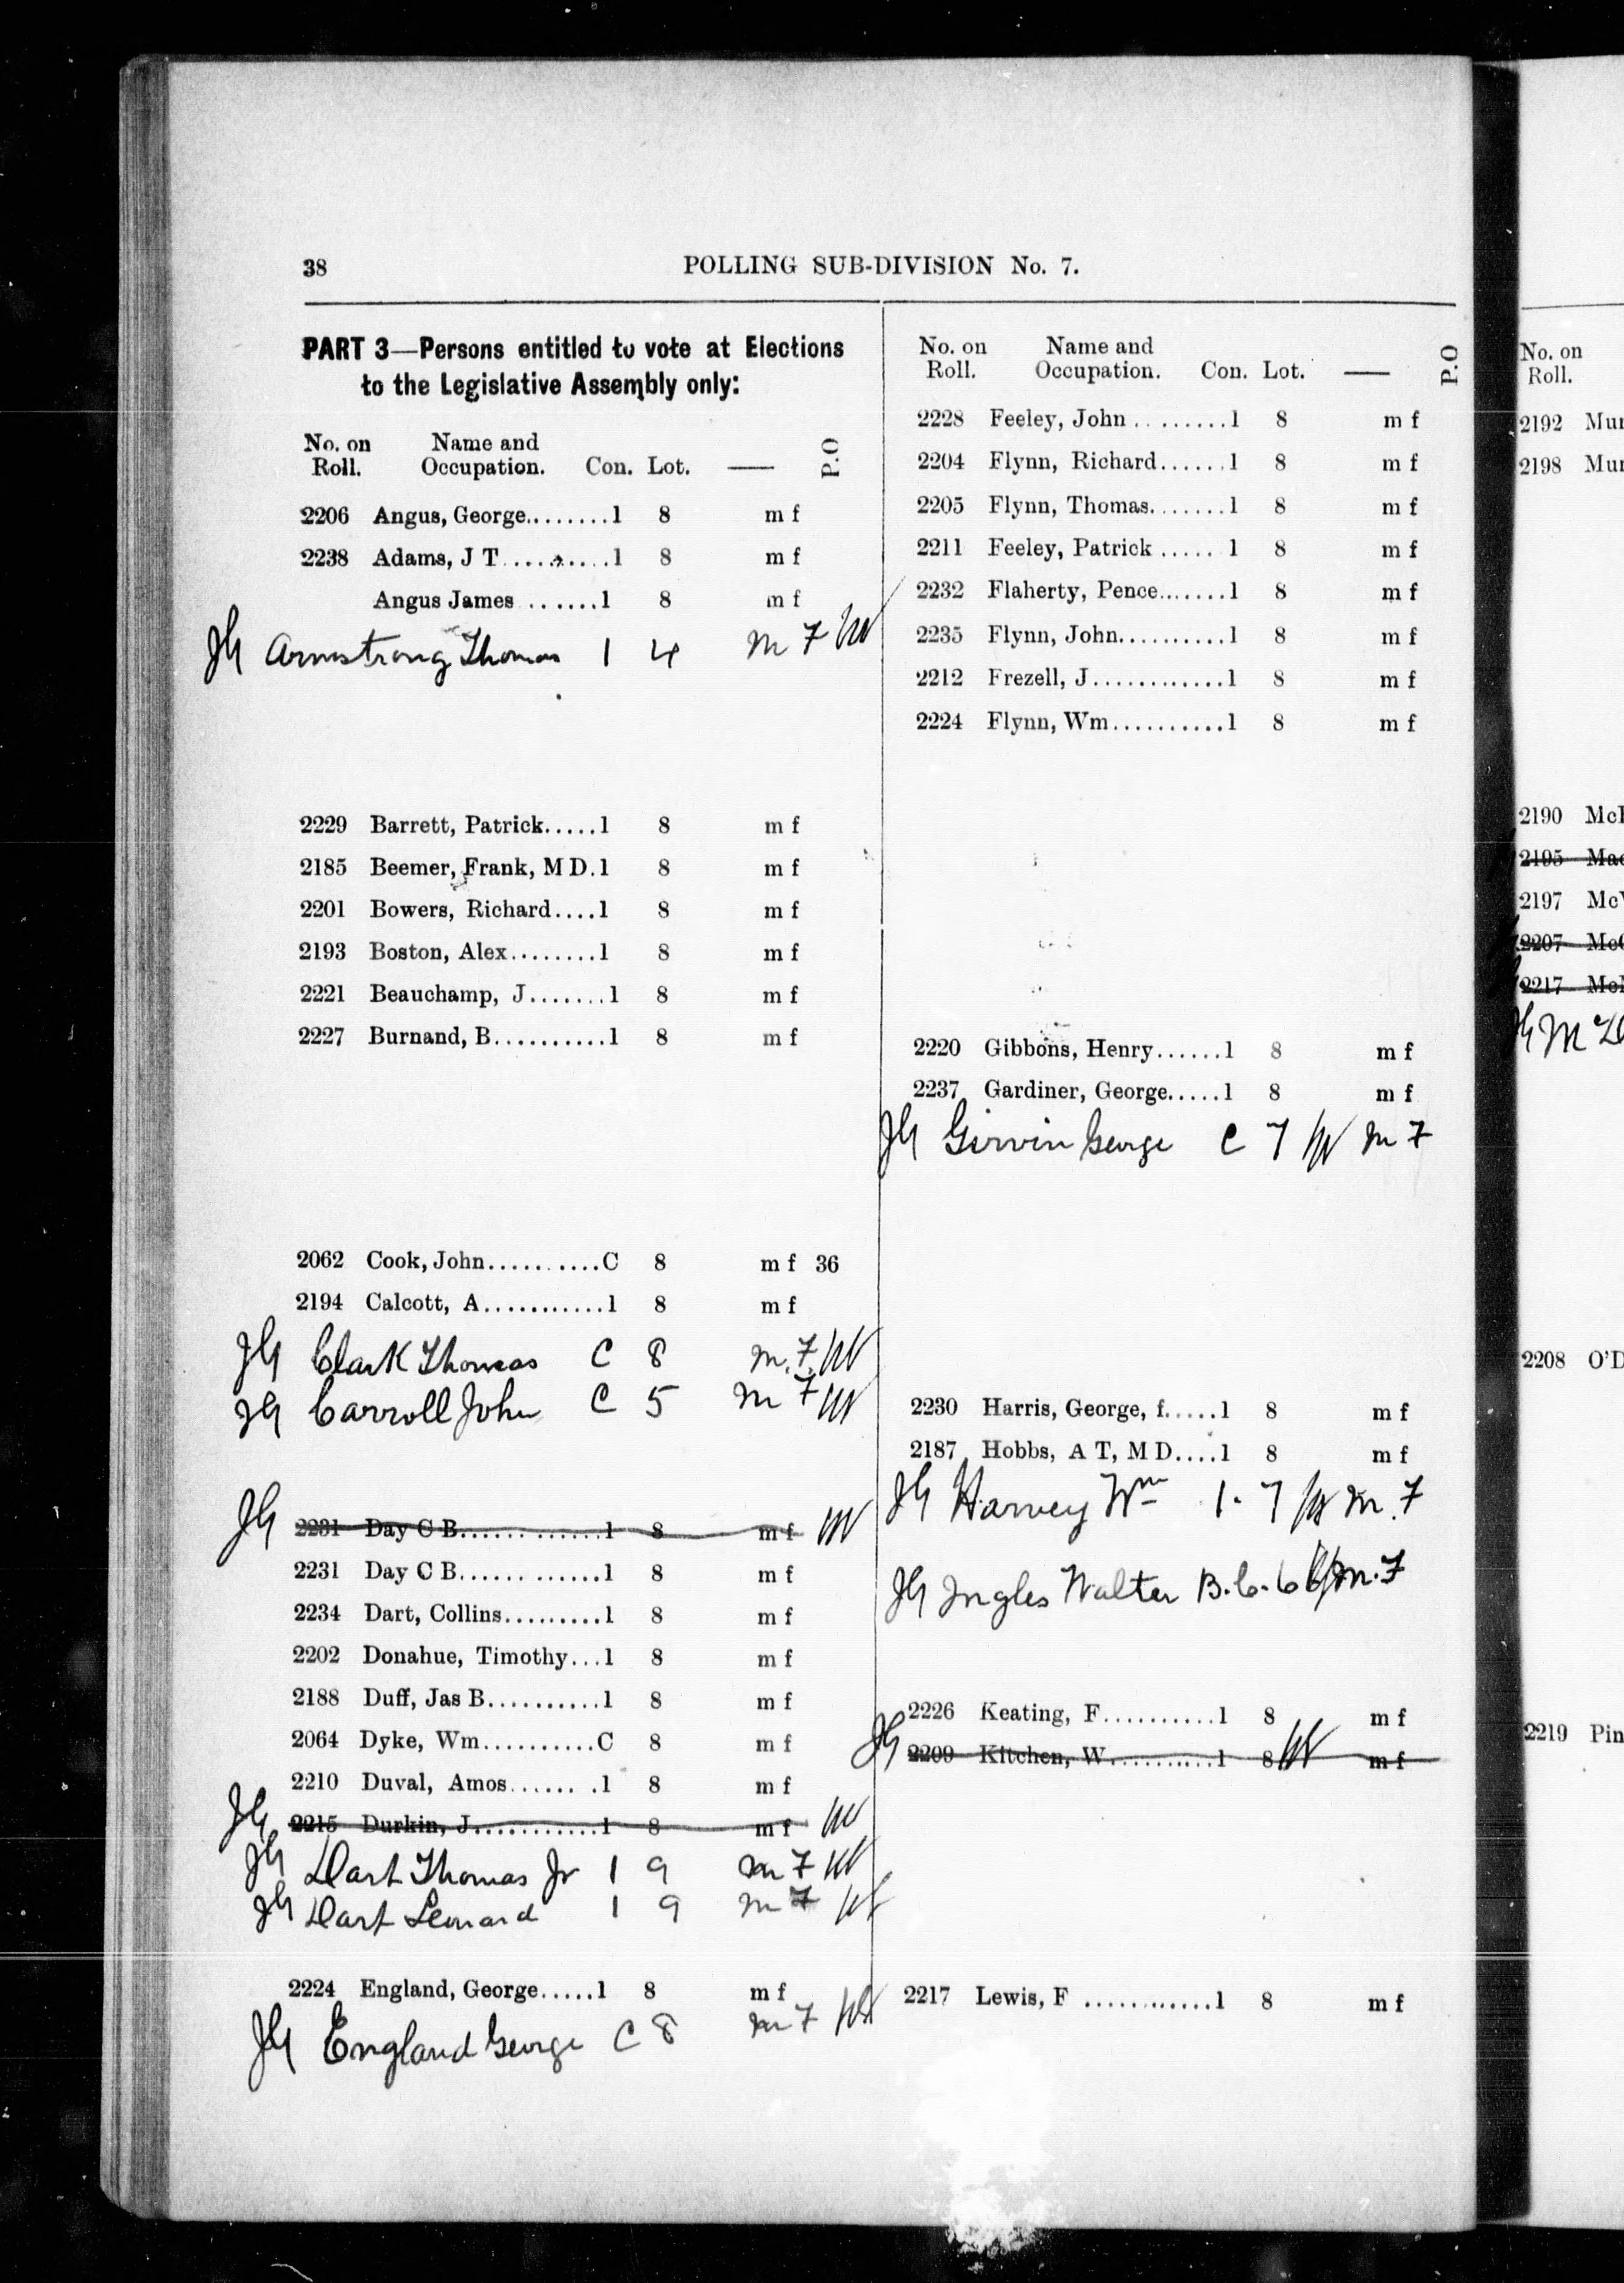 38
POLLING SUB-DIVISION No. 7.
PART 3—Persons entitled to vote at Elections
to the Legislative Assembly only:
No. on Name and
Roll. Occupation. Con. Lot. — P.O
2206 Angus, George........1 8 m f
2238 Adams, J T..........1 8 m f
Angus James .......1 8 m f
JG Armstrong Thomas 1 4 m F
2229 Barrett, Patrick.....1 8 m f
2185 Beemer, Frank, M D.1 8 m f
2201 Bowers, Richard....1 8 m f
2193 Boston, Alex........1 8 m f
2221 Beauchamp, J.......1 8 m f
2227 Burnand, B..........1 8 m f
2062 Cook, John..........C 8 m f 36
2194 Calcott, A...........1 8 m f
JG Clark Thomas C 8 m.F.
JG Carroll John C 5 m F
JG 2231 Day C B............1 8 m f
2231 Day C B............1 8 m f
2234 Dart, Collins.........1 8 m f
2202 Donahue, Timothy...1 8 m f
2188 Duff, Jas B..........1 8 m f
2064 Dyke, Wm..........C 8 m f
2210 Duval, Amos.......1 8 m f
JG 2215 Durkin, J............1 8 m f
JG Dart Thomas Jr 1 9 m F
JG Dart Leonard 1 9 m F
2224 England, George.....1 8 m f
JG England George C 8 m F
No. on Name and
Roll. Occupation. Con. Lot. — P.O
2228 Feeley, John.........1 8 m f
2204 Flynn, Richard......1 8 m f
2205 Flynn, Thomas.......1 8 m f
2211 Feeley, Patrick......1 8 m f
2232 Flaherty, Pence.......1 8 m f
2235 Flynn, John..........1 8 m f
2212 Frezell, J............1 8 m f
2224 Flynn, Wm..........1 8 m f
2220 Gibbons, Henry......1 8 m f
2237 Gardiner, George.....1 8 m f
JG Girvin George C 7 m F
2230 Harris, George, f.....1 8 m f
2187 Hobbs, A T, M D....1 8 m f
JG Harvey Wm 1. 7 m.F
JG Ingles Walter B.C. 6 m.F
2226 Keating, F..........1 8 m f
JG 2209 Kitchen, W..........1 8 m f
2217 Lewis, F ............1 8 m f
No. on
Roll.
2192 Mu
2198 Mu
2190 Mc
2195 Ma
2197 Mc
2207 Mc
2217 Mc
2208 O'D
2219 Pin